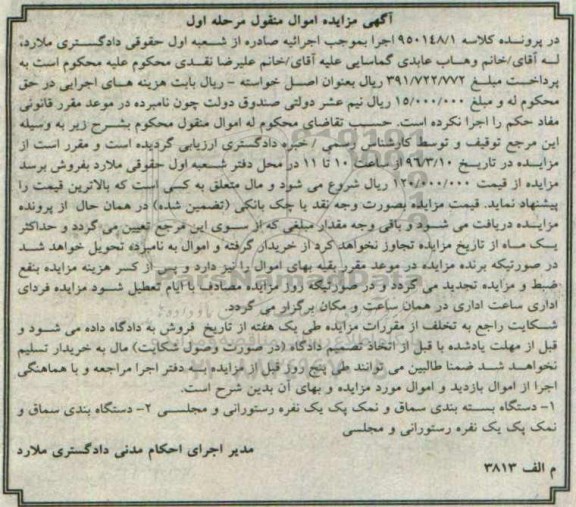 آگهی مزایده اموال منقول مرحله اول
در پرونده کلاسه ۹۵۰۱۴۸/۱ اجرا بموجب اجرائیه صادره از شعبه اول حقوقی دادگستری ملارد،
لـه آقای/خانم وهـاب عابدی گماسایی علیه آقای/خانم علیرضا نقـدی محکوم علیه محکوم است به
پرداخت مبلغ ۳۹۱/۷۲۲/۷۷۲ ریال بعنوان اصـل خواسته - ریال بابت هزینه هـای اجرایی در حق
محکوم له و مبلغ ۱۵/۰۰۰/۰۰۰ ریال نیم عشر دولتی صندوق دولت چون نامبرده در موعد مقرر قانونی
مفاد حکم را اجرا نکرده است. حسب تقاضای محکوم له اموال منقول محکوم بشـرح زیر به وسیله
این مرجع توقیف و توسط کارشناس رسمی / خبره دادگستری ارزیابی گردیده است و مقرر است از
مزایـده در تاریـخ ۹۶/۳/۱۰ از ساعت ۱۰ تا ۱۱ در محل دفتر شـعبه اول حقوقی ملارد بفروش برسد
مزایده از قیمت ۱۲۰/۰۰۰/۰۰۰ ریال شروع می شود و مال متعلق به کسی است که بالاترین قیمت را
پیشنهاد نماید. قیمت مزایده بصورت وجه نقد یا چک بانکی (تضمین شده) در همان حال از برونده
مزایـده دریافت می شـود و باقی وجه مقدار مبلغی که از سـوی این مرجع تعیین می گردد و حداکثر
یک مـاه از تاریخ مزایده تجاوز نخواهد کرد از خریدار گرفته و اموال به نامبرده تحویل خواهد شـد
در صورتیکه برنده مزایده در موعد مقرر بقیه بهای اموال را نپردازد و پس از کسر هزینه مزایده بنفع
ضبط و مزایده تجدید می گردد و در صورتیکه روز مزایده مصادف با ایام تعطیل شـود مزایده فردای
اداری ساعت اداری در همان ساعت و مکان برگزار می گردد.
شـکایت راجع به تخلف از مقررات مزایده طی یک هفته از تاریخ فروش به دادگاه داده می شـود و
قبل از مهلت یادشده یا قبل از اتخاذ تصمیم دادگاه (در صورت وصول شکایت) مال به خریدار تسلیم
نخواهـد شـد ضمنا طالبین می توانند طی پنج روز قبل از مزایده بـه دفتر اجرا مراجعه و با هماهنگی
اجرا از اموال بازدید و اموال مورد مزایده و بهای آن بدین شرح است.
۱- دستگاه بسته بندی سماق و نمک پک یک نفره رستورانی و مجلسـی ۲- دستگاه بندی سماق و
نمک پک یک نفره رستورانی و مجلسی
مدیر اجرای احکام مدنی دادگستری ملارد
م الف ۳۸۱۳